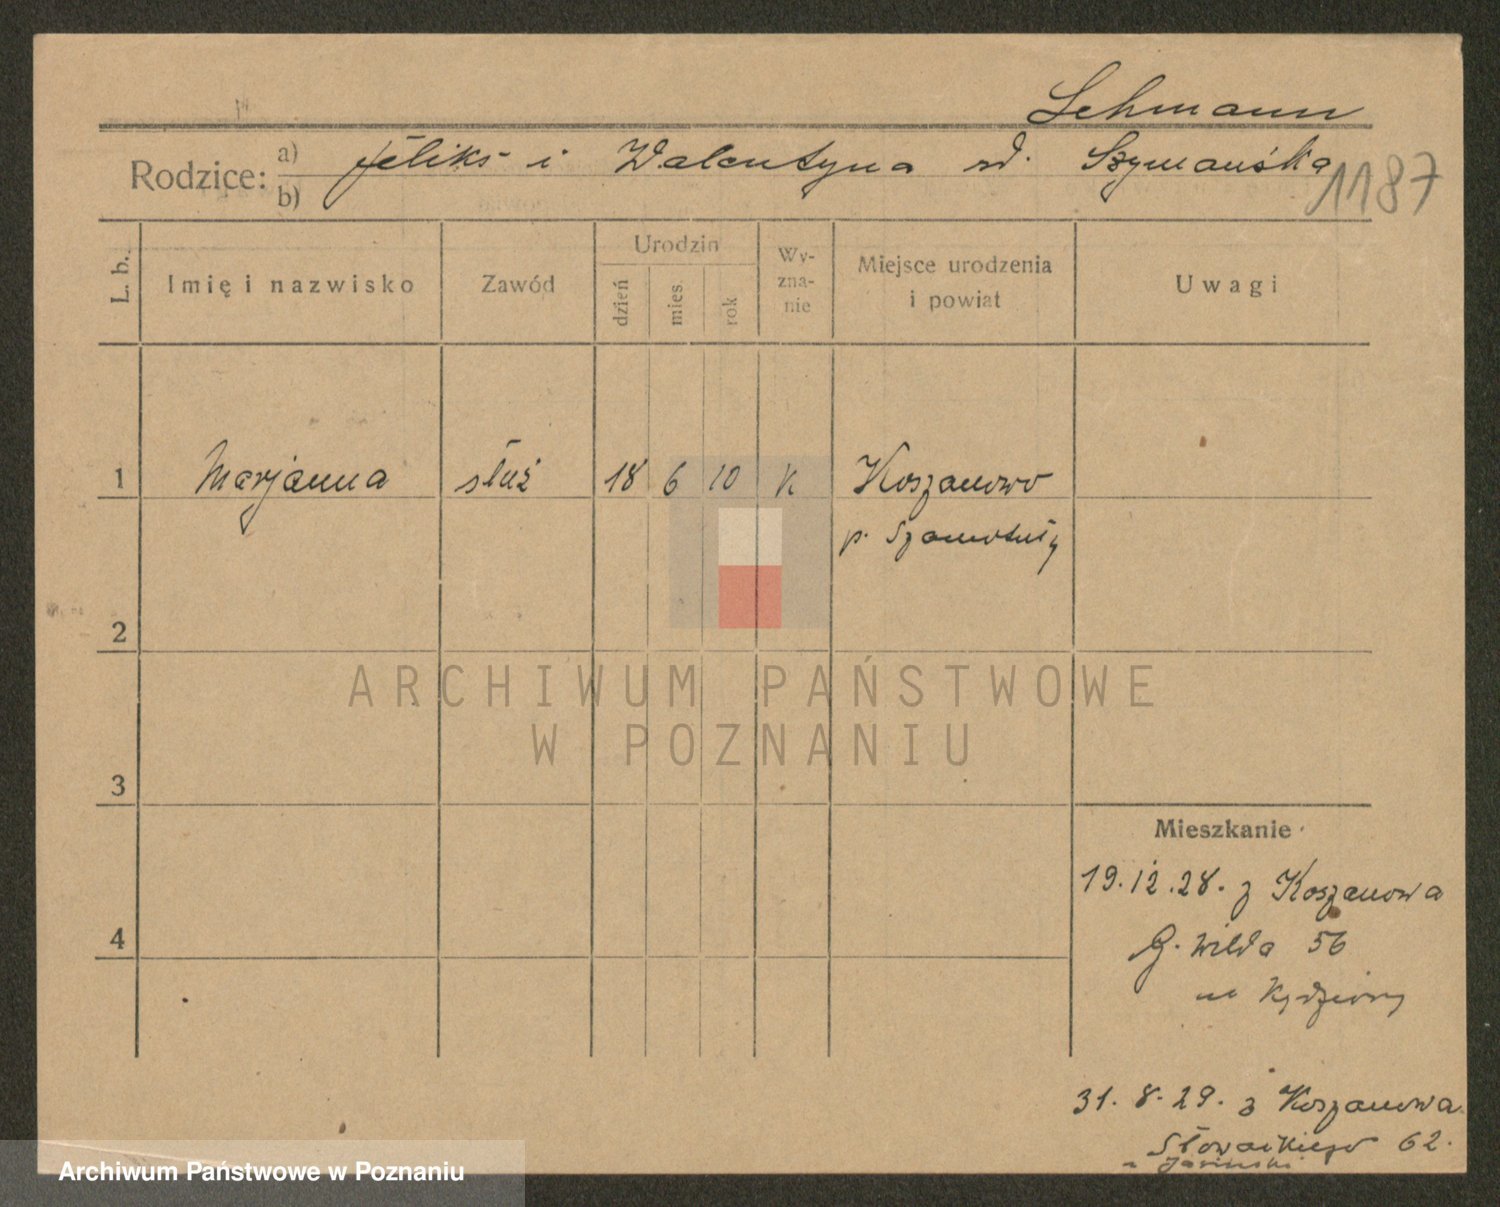 Lehmann
Rodzice: a) b) Feliks i Walentyna rd. Szymańska
1187
L. b. Imię i nazwisko Zawód Urodzin dzień mies. rok Wy-zna-nie Miejsce urodzenia i powiat Uwagi
1 Marjanna służ 18 6 10 K Koszanowo
p. Szamotuły
2
ARCHIWUM PAŃSTWOWE
W POZNANIU
3
Mieszkanie
19.12.28. z Koszanowa
4
G. Wilda 56
31.8.29. z Koszanowa
Słowackiego 62.
Archiwum Państwowe w Poznaniu